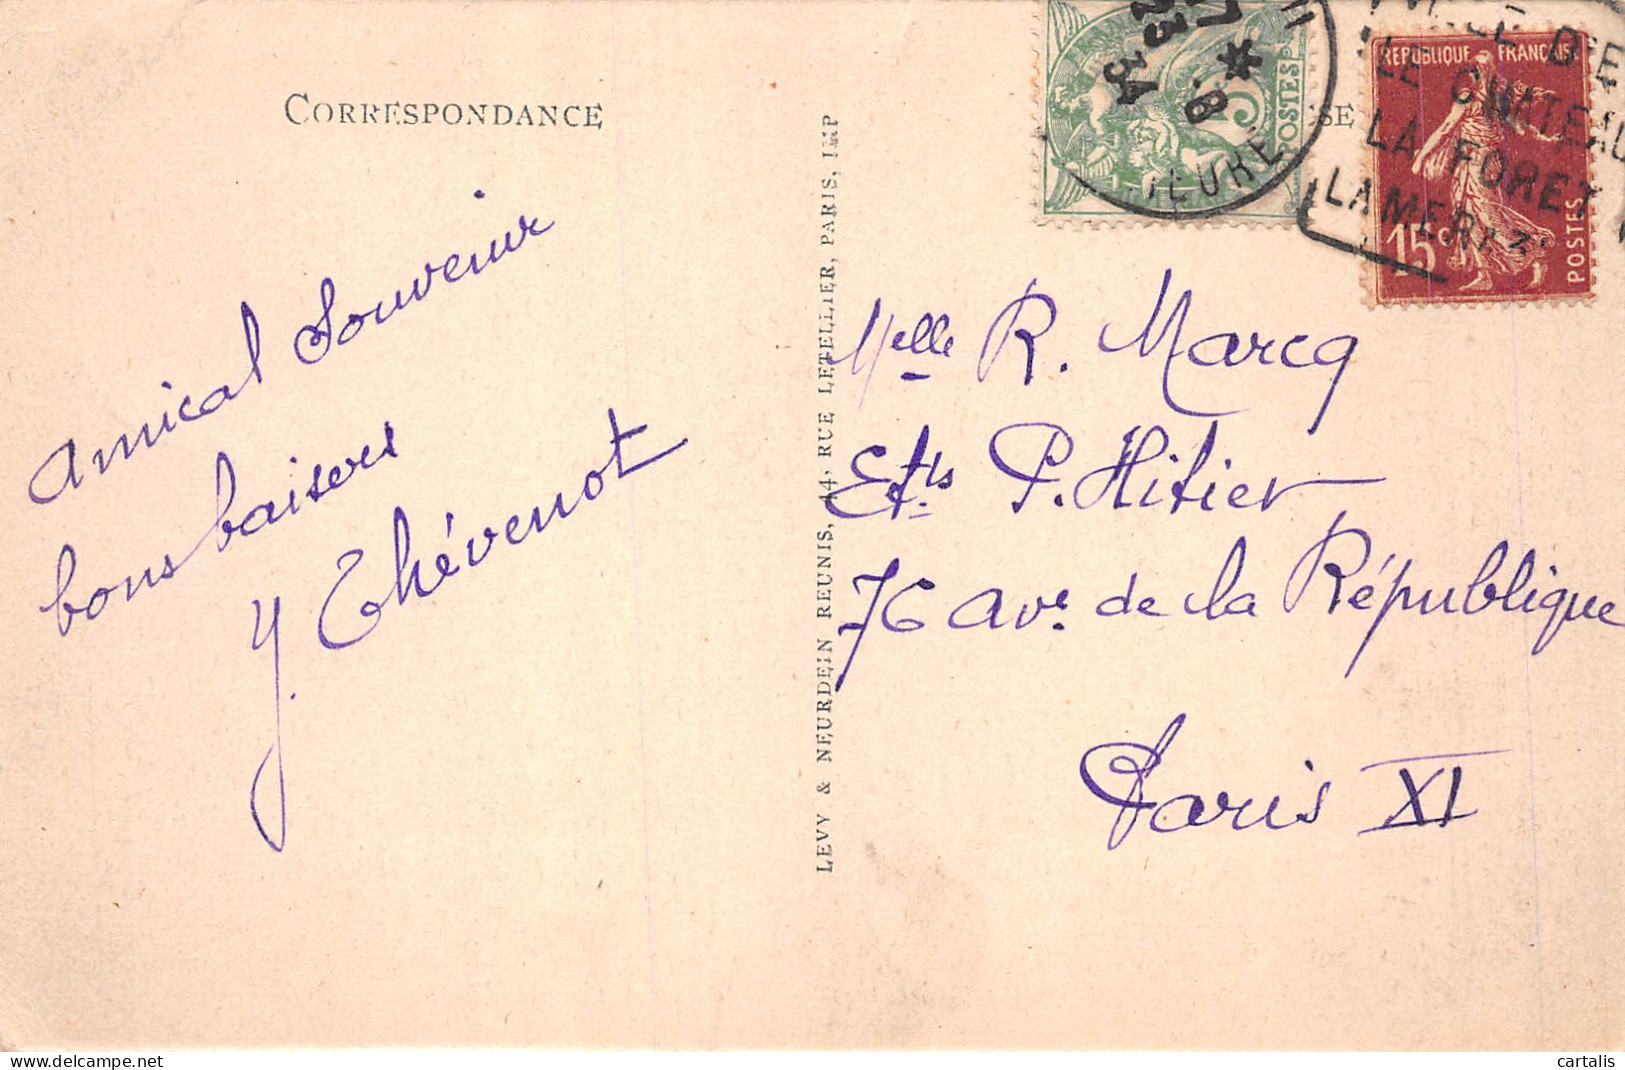 CORRESPONDANCE
Amical Souvenir
bons baisers
Y. Thévenot
LEVY & NEURDEIN REUNIS, 44, RUE LETELLIER, PARIS, IMP
23 34
* 8
5
POSTES
RÉPUBLIQUE FRANÇAISE
15c
POSTES
LE CHATEAU
LA FORET
LA MER
Melle R. Marcq
Ets P. Hitier
76 ave de la République
Paris XI
cartalis
delcampe.net